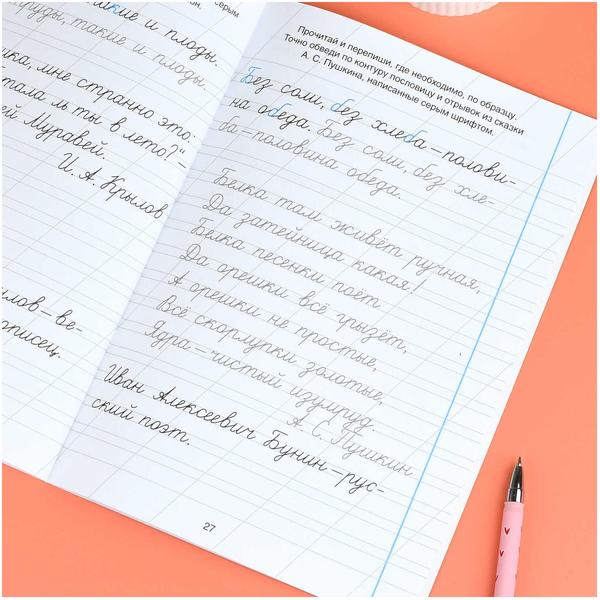 серым
кие и плоды.
груды, такие и плоды.
мне странно это:
ль ты в лето?"–
Муравей.
И. А. Крылов
ве-
Прочитай и перепиши, где необходимо, по образцу.
Точно обведи по контуру пословицу и отрывок из сказки
А. С. Пушкина, написанные серым шрифтом.
Без соли, без хлеба–полови-
на обеда. Без соли, без хле-
ба–половина обеда.
Белка там живёт ручная,
Да затейница какая!
Белка песенки поёт
Да орешки всё грызёт,
А орешки не простые,
Всё скорлупки золотые,
Ядра–чистый изумруд.
А. С. Пушкин
Иван Алексеевич Бунин–рус-
ский поэт.
27